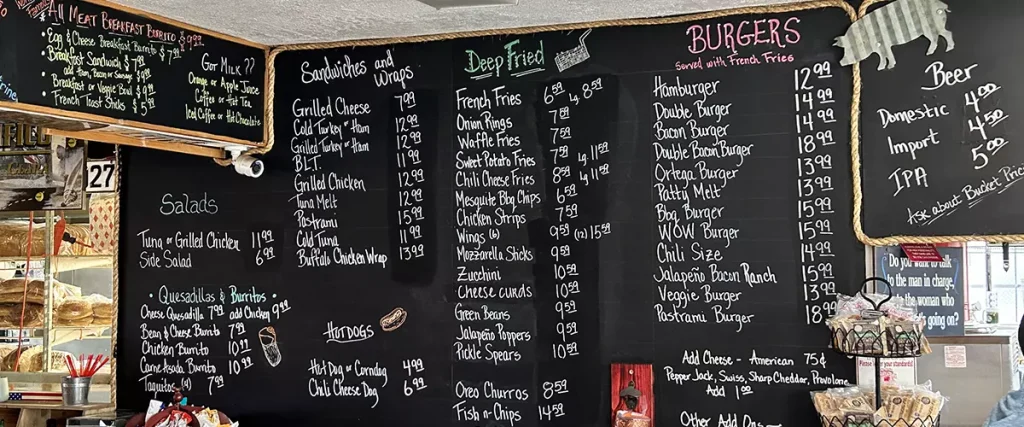 All Meat Breakfast Burrito $9.99
• Egg & Cheese Breakfast Burrito $7.99
• Breakfast Sandwich $7.99
add Ham, Bacon or Sausage $9.99
• Breakfast or Veggie Bowl $9.99
• French Toast Sticks $5.99
Got Milk ??
Orange or Apple Juice
Coffee or Hot Tea
Iced Coffee or Hot Chocolate
27
Salads
Tuna or Grilled Chicken 11.99
Side Salad 6.99
• Quesadillas & Burritos •
Cheese Quesadilla 7.99 add Chicken 9.99
Bean & Cheese Burrito 7.99
Chicken Burrito 10.99
Carne Asada Burrito 10.99
Taquitos (4) 7.99
Sandwiches and
Wraps
Grilled Cheese 7.99
Cold Turkey or Ham 12.99
Grilled Turkey or Ham 12.99
B.L.T. 11.99
Grilled Chicken 12.99
Tuna Melt 12.99
Pastrami 15.99
Cold Tuna 11.99
Buffalo Chicken Wrap 13.99
Hotdogs
Hot Dog or Corndog 4.99
Chili Cheese Dog 6.99
Deep Fried
French Fries 6.59 Lg 8.59
Onion Rings 7.59
Waffle Fries 7.59
Sweet Potato Fries 7.59 Lg 11.59
Chili Cheese Fries 8.59 Lg 11.59
Mesquite Bbq Chips 6.59
Chicken Strips 7.59
Wings (6) 9.59 (12) 15.59
Mozzarella Sticks 9.59
Zucchini 10.59
Cheese Curds 10.59
Green Beans 9.59
Jalapeño Poppers 9.59
Pickle Spears 10.59
Oreo Churros 8.59
Fish n-Chips 14.59
BURGERS
Served with French Fries
Hamburger 12.99
Double Burger 14.99
Bacon Burger 14.99
Double Bacon Burger 18.99
Ortega Burger 13.99
Patty Melt 13.99
Bbq Burger 15.99
WOW Burger 15.99
Chili Size 14.99
Jalapeño Bacon Ranch 15.99
Veggie Burger 13.99
Pastrami Burger 18.99
Add Cheese - American 75¢
Pepper Jack, Swiss, Sharp Cheddar, Provolone
Add 1.00
Other Add Ons
Beer
Domestic 4.00
Import 4.50
IPA 5.00
Ask about Bucket
Do you want to talk
to the man in charge,
the woman who
going on?